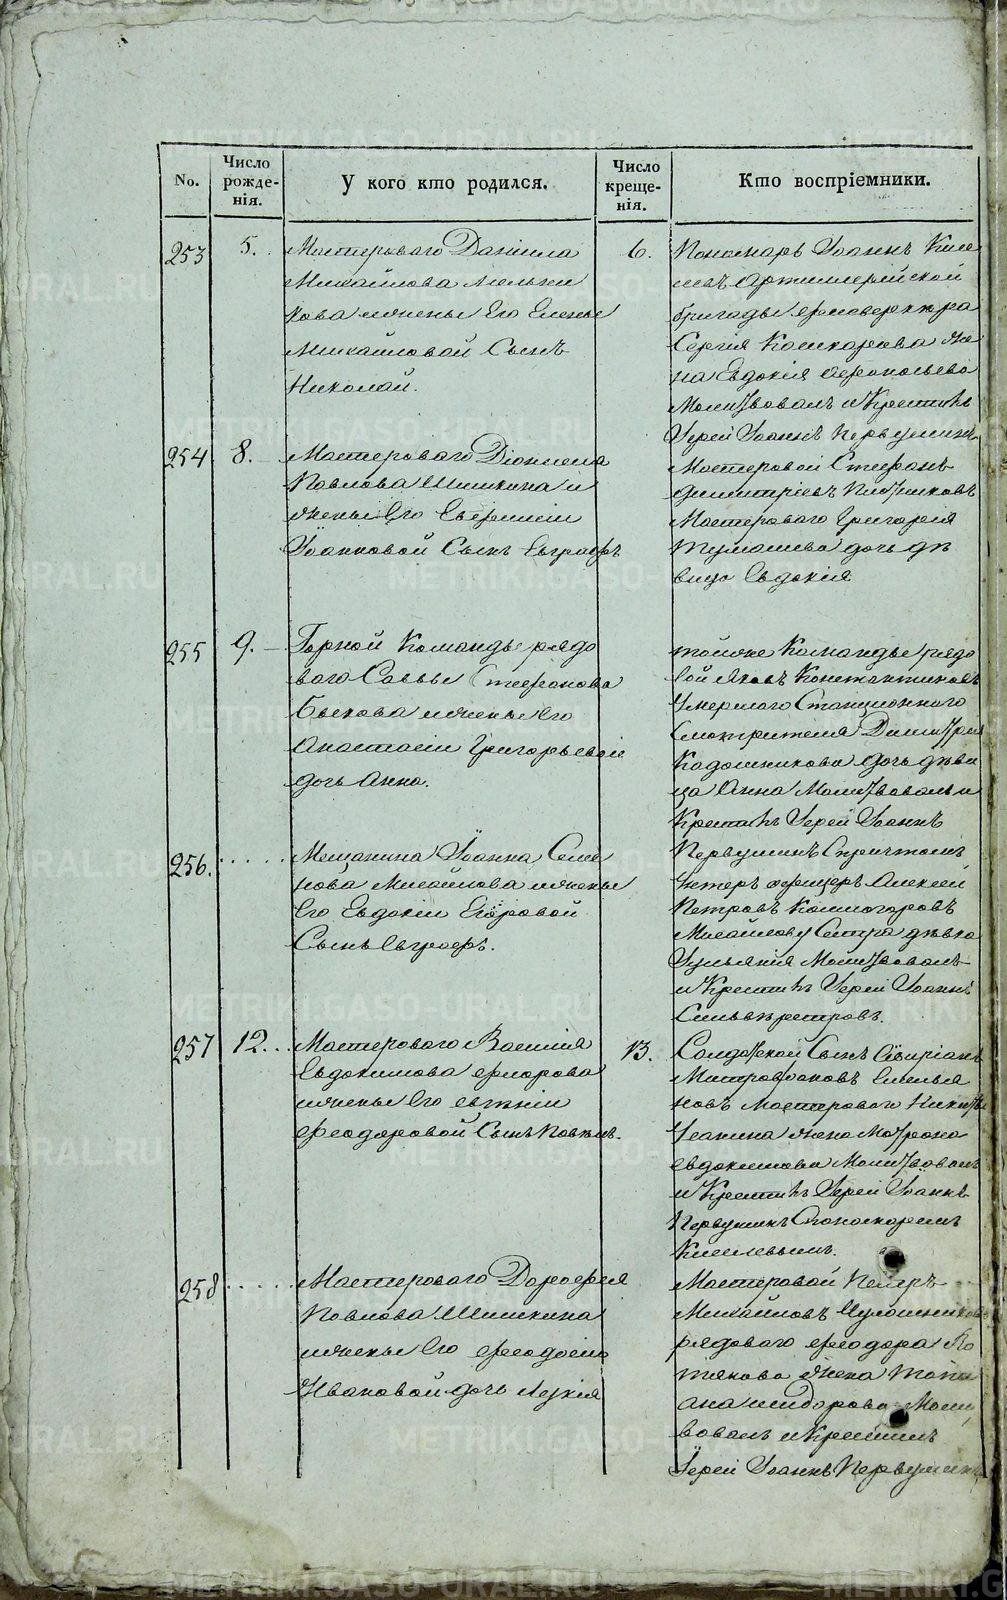 No.
Число рожденія.
У кого кто родился.
Число крещенія.
Кто воспріемники.
253
5.
Мастероваго Даніила
Михайлова Мельни
кова и жены его Елены
Михайловой Сынъ
Николай.
6.
Пономарь Іоаннъ Кисе
левъ Артиллерійской
бригады фейерверкера
Сергія Кошкарова же
на Евдокія
Молитвовалъ и Крестилъ
Іерей Іоаннъ Первушинъ
254
8.
Мастероваго Діонисія
Павлова Шишкина и
жены его Евфиміи
Іоанновой Сынъ Евграфъ
Мастеровой Стефанъ
Димитріевъ
Мастероваго Григорія
Тумашева дочь дѣ
вица Евдокія
255
9.
Горной Команды рядо
ваго Саввы Стефанова
Быкова и жены его
Анастасіи Григорьевой
дочь Анна.
тойже Команды рядо
вой Яковъ Константиновъ
Умершаго Станціоннаго
Смотрителя Димитрія
Кадошникова дочь дѣви
ца Анна Молитвовалъ и
Крестилъ Іерей Іоаннъ
Первушинъ С причтомъ
256.
Мещанина Іоанна Семе
нова Михайлова и жены
его Евдокіи Егоровой
Сынъ Евграфъ.
Унтеръ офицеръ Алексей
Петровъ Колмогоровъ
Михайлову Сестра дѣвка
Іуліанія Молитвовалъ
и Крестилъ Іерей Іоаннъ
Сильвестровъ.
257
12.
Мастероваго Василія
Евдокимова Фларова
и жены его Евгеніи
Феодоровой Сынъ Павелъ.
13.
Солдатской Сынъ Кипріанъ
Митрофановъ Емелья
новъ Мастероваго Никиты
жена Матрона
Евдокимова Молитвовалъ
и Крестилъ Іерей Іоаннъ
Первушинъ С пономаремъ
Киселевымъ.
258
Мастероваго Дорофея
Павлова Шишкина
и жены его Феодосіи
Ивановой дочь Лукія
Мастеровой Петръ
Михайловъ
рядоваго Феодора Ко
тикова жена Тати
ана Исидорова Молит
вовалъ и Крестилъ
Іерей Іоаннъ Первушинъ
METRIKI.GASO-URAL.RU